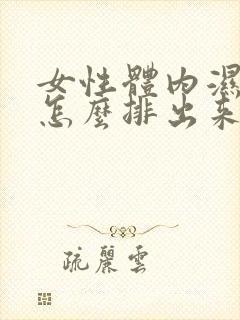 女性體內濕
怎麼排出來
疏麗雲